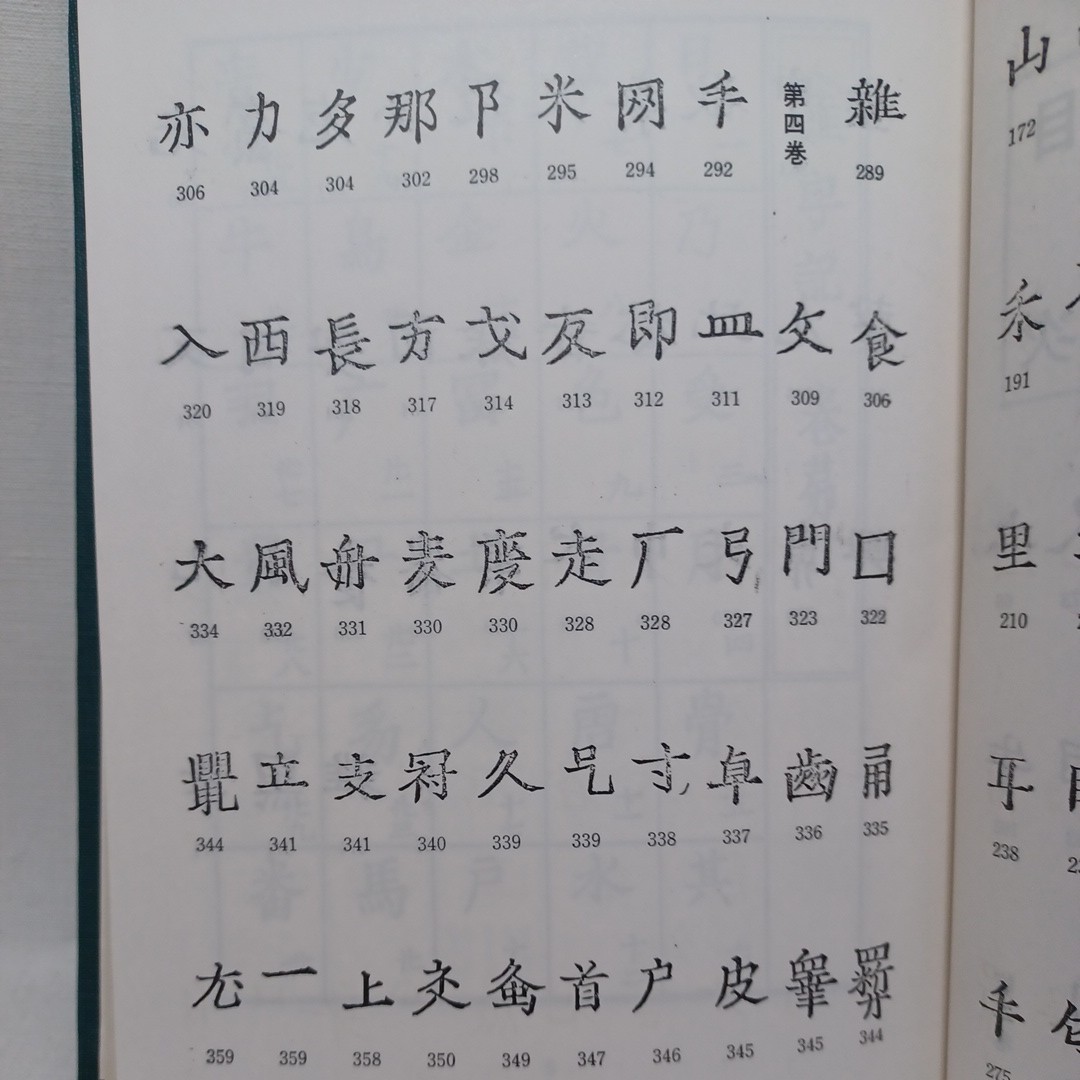 山
172
禾
191
里
210
耳
238
手
275
雜 第四巻 手 网 米 卩 那 多 力 亦
289 292 294 295 298 302 304 304 306
食 文 皿 即 戈 方 長 西 入
306 309 311 312 313 314 317 318 319 320
口 門 弓 厂 走 麦 舟 風 大
322 323 327 328 328 330 330 331 332 334
齒 卓 寸 久 支 立
335 336 337 338 339 339 340 341 341 344
皮 户 首 上 一 尢
344 345 345 346 347 349 350 358 359 359